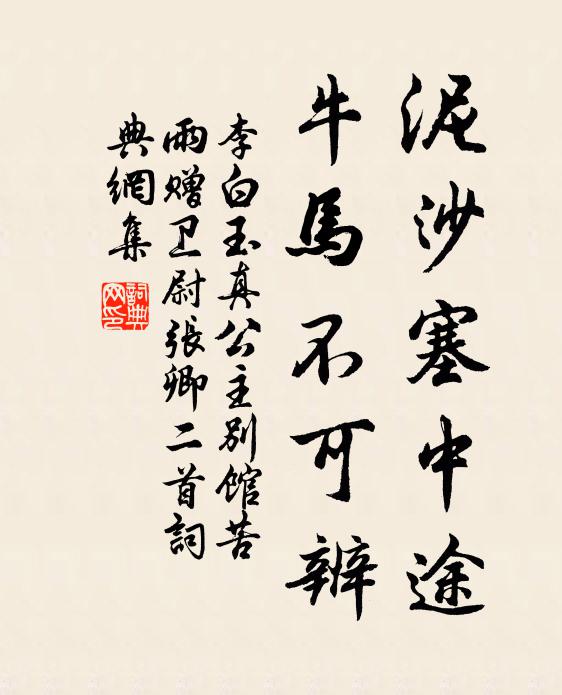 泥沙塞中途
牛馬不可辨
李白玉真公主别館苦
雨赠卫尉張卿二首詞
典網集
詞典网印